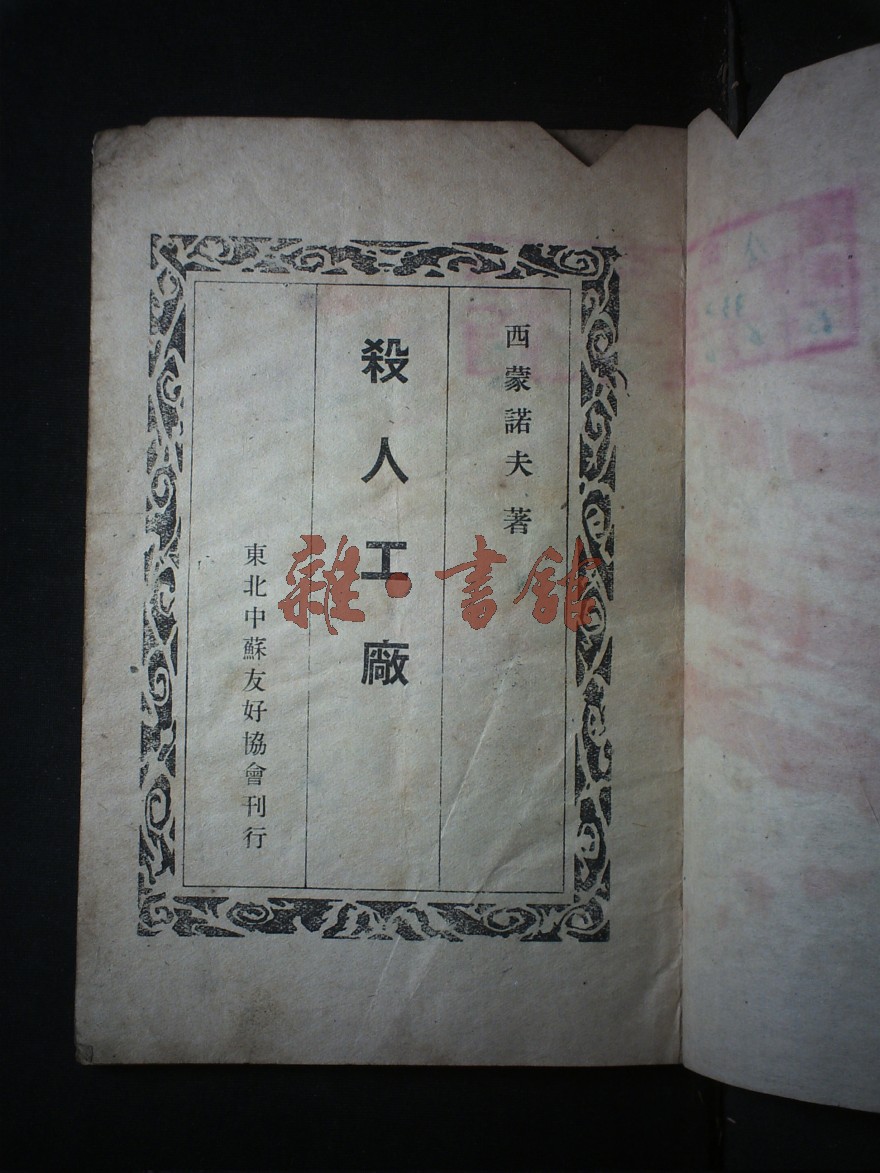 西蒙諾夫 著
殺人工廠
東北中蘇友好協會刊行
雜·書館